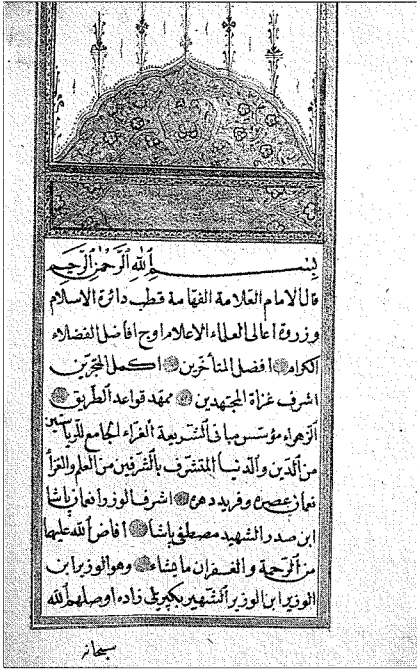 بسم الله الرحمن الرحيم
قال الامام العلامة الفهامة قطب دائرة الاسلام
وزروة اعالى العلماء الاعلام اوج افاضل الفضلاء
الكرام افضل المتأخرين اكمل المتبحرين
اشرف غزاة المجتهدين ممهد قواعد الطريق
الزهراء مؤسس مبانى الشريعة الغراء الجامع للرياستين
من الدين والدنيا المتشرف بالشرفين من العلم والغزا
نعمان عصره وفريد دهره اشرف الوزرا نعمان باشا
ابن صدر الشهيد مصطفى باشا افاض الله عليهما
من الرحمة والغفران ما يشاء وهو الوزير ابن
الوزير ابن الوزير الشهير بكپريلى زاده اوصلهم الله
سبحانه